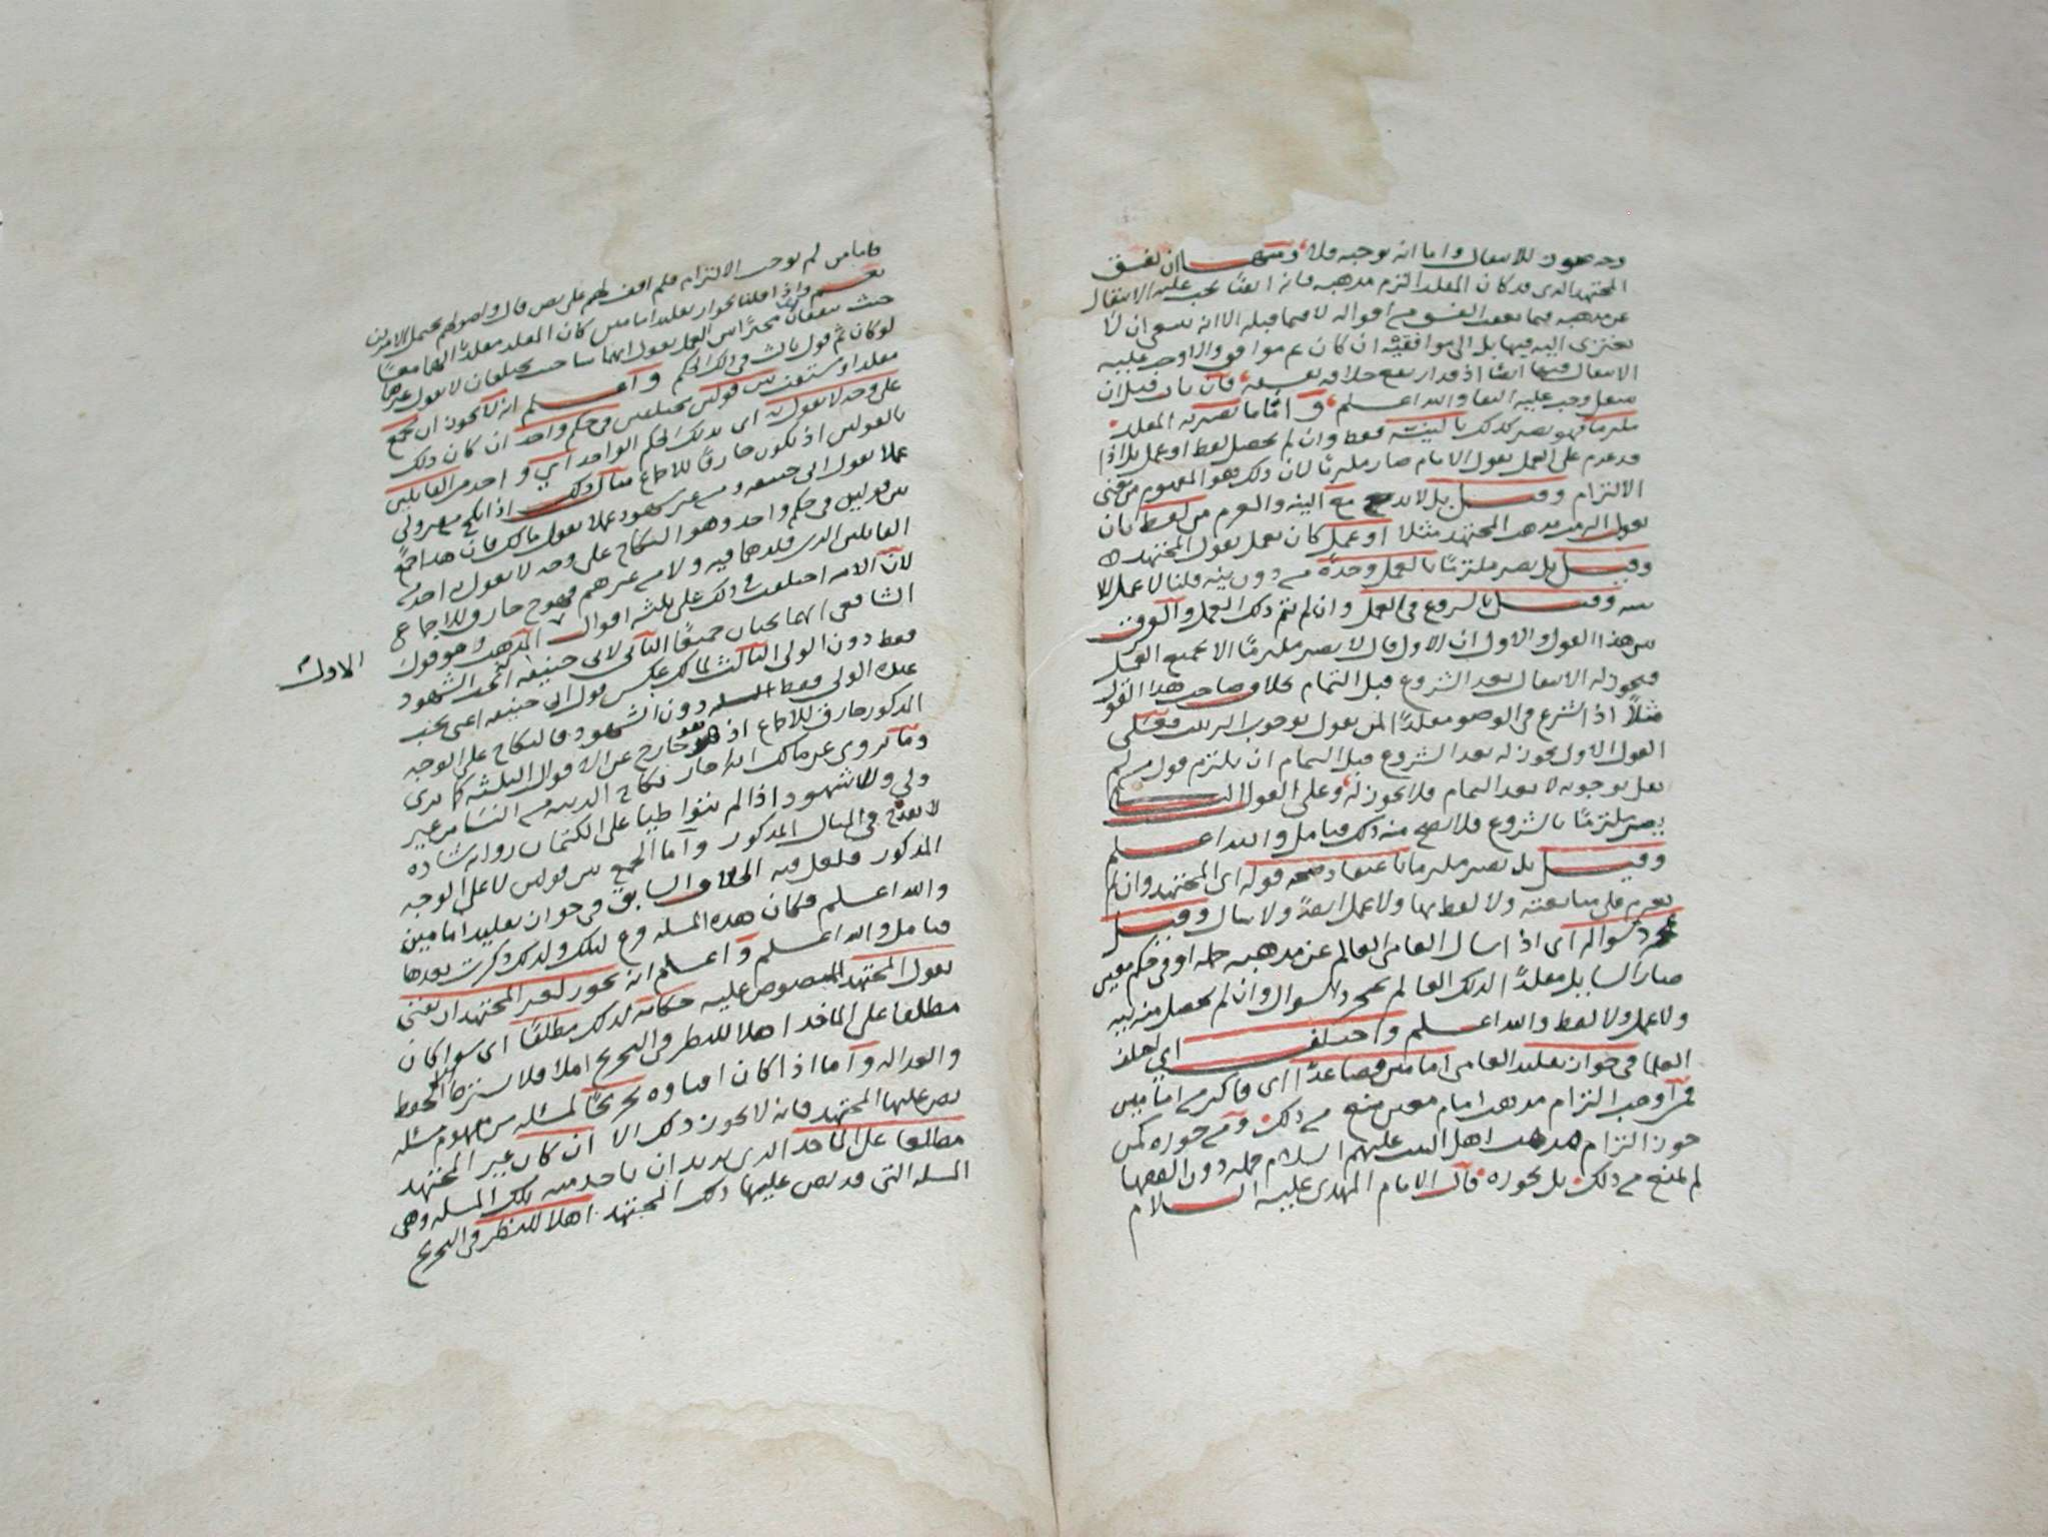 وجه يجوز للانتقال واما انه يوجبه فلا ومنها ان يفسق
المجتهد الذي قد كان المقلد التزم مذهبه فانه ايضا يجب عليه الانتقال
عن مذهبه فيما بعد الفسق من اقواله لا فيما قبله الا انه ينبغي ان لا
يعتزي اليه فيها بل الى موافقيه ان كان ثم موافق والا وجب عليه
الانتقال فيها ايضا اذ قد ارتفع خلافه بفسقه فان تاب قبل ان
ينتقل وجب عليه البقا والله اعلم و اما ما يصير به المقلد
ملتزما فهو يصير كذلك بالنية فقط وان لم يحصل لفظ او عمل بل اذا
قد عزم على العمل بقول الامام صار ملتزما لان ذلك هو المفهوم من معنى
الالتزام وقيل بل لا بد مع النية والعزم من لفظ بان
يقول انه مذهب المجتهد مثلا او عمل كان يعمل بقول المجتهد
وقيل بل يصير ملتزما بالعمل وحده من دون نية قلنا لا عمل الا
بنية وقيل بالشروع في العمل وان لم يتم ذلك العمل والفرق
بين هذا القول والاول ان الاول قال لا يصير ملتزما الا بجميع العمل
فيجوز له الانتقال بعد الشروع قبل التمام بخلاف صاحب هذا القول
مثلا اذا شرع في الوضو مقلدا لمن يقول بوجوب الترتيب فعلى
القول الاول يجوز له بعد الشروع قبل التمام ان يلتزم قول من لم
يقل بوجوبه لا بعد التمام فلا يجوز له وعلى القول
يصير ملتزما بالشروع فلا يصح منه ذلك فتامل والله اعلم
وقيل بل يصير ملتزما باعتقاد صحة قوله اي المجتهد وان لم
يعزم على متابعته ولا لفظ بها ولا عمل ايضا ولا سال وقيل
بمجرد سواله اي اذا سال العامي العالم عن مذهبه جملة او في حكم معين
صار السايل مقلدا لذلك العالم بمجرد السوال وان لم يحصل منه نية
ولا عمل ولا لفظ والله اعلم واختلف اي اختلف
العلما في جواز تقليد العامي امامين فصاعدا اي فاكثر من امامين
فمن اوجب التزام مذهب امام معين منع من ذلك ومن جوزه كمن
جوز التزام مذهب اهل البيت عليهم السلام جملة دون الفقها
لم يمنع من ذلك بل يجوزه قال الامام المهدي عليه السلام
فاما من لم يوجب الالتزام فلم اقف لهم على نص قال واصولهم تحتمل الامرين
نعم واذا قلنا بجواز تقليد امامين كان المقلد مقلدا لهما معا
حيث يتفقان مخيرا في العمل بقول ايهما شا حيث يختلفان لا بقول غيرهما
لو كان ثم قول ثالث في ذلك الحكم واعلم انه لا يجوز ان يجمع
مقلد او مستفت بين قولين مختلفين في حكم واحد ان كان ذلك
على وجه لا يقول به اي بذلك الحكم الواحد اي واحد من القايلين
بالقولين اذ يكون خارقا للاجماع مثال ذلك اذا نكح بغير ولي
عملا بقول ابي حنيفة ومن غير شهود عملا بقول مالك فان هذا جمع
بين قولين في حكم واحد وهو النكاح على وجه لا يقول به احد من
القايلين الذين قلدهما فيه ولا من غيرهم فهو ح خارق للاجماع
لان الامة اختلفت في ذلك على ثلثة اقوال المذهب وهو قول
الشافعي انهما يجبان جميعا الثاني لابي حنيفة انه يجب الشهود
فقط دون الولي الثالث لمالك عكس قول ابي حنيفة اعني يجب
عنده الولي فقط دون الشهود فالنكاح على الوجه
المذكور خارق للاجماع اذ هو خارج عن الاقوال الثلثة كما ترى
وما يروى عن مالك انه جاز نكاح الدنية من النسا من غير
ولي ولا شهود اذا لم يتواطيا على الكتمان رواية شاذه
لا تقدح في المثال المذكور واما الجمع بين قولين لا على الوجه
المذكور فلعل فيه الخلاف السابق في جواز تقليد امامين
والله اعلم فكان هذه المسله فرع لتلك ولذلك ذكرت بعدها
فتامل والله اعلم واعلم انه يجوز لغير المجتهد ان يفتي
بقول المجتهد المنصوص عليه حكاية لذلك مطلقا اي سوا كان
مطلعا على الماخذ اهلا للنظر في التخريج ام لا فلا يشترط الا الحفظ
والعدالة واما اذا كان افتاوه تخريجا لمسئلة من مفهوم مسئلة
نص عليها المجتهد فانه لا يجوز ذلك الا ان كان غير المجتهد
مطلعا على الماخذ الذي يريد ان ياخذ منه تلك المسله وهي
المسله التي قد نص عليها ذلك المجتهد اهلا للنظر في التخريج
الاول